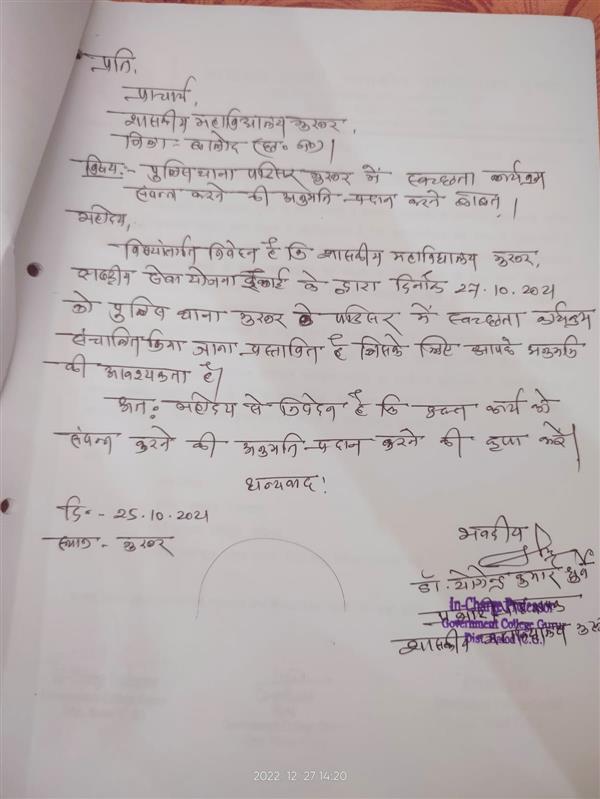 प्रति,
प्राचार्य,
शासकीय महाविद्यालय गुरुर,
जिला - बालोद (छ० ग०)।
विषय:- पुलिस थाना परिसर गुरुर में स्वच्छता कार्यक्रम
संपन्न करने की अनुमति प्रदान करने बाबत्।
महोदय,
विषयांतर्गत निवेदन है कि शासकीय महाविद्यालय गुरुर,
राष्ट्रीय सेवा योजना ईकाई के द्वारा दिनाँक 27.10.2021
को पुलिस थाना गुरुर के परिसर में स्वच्छता कार्यक्रम
संचालित किया जाना प्रस्तावित है जिसके लिए आपके अनुमति
की आवश्यकता है।
अतः महोदय से निवेदन है कि उक्त कार्य को
संपन्न करने की अनुमति प्रदान करने की कृपा करें।
धन्यवाद!
दि. - 25.10.2021
स्थान - गुरुर
भवदीय
डॉ. योगेन्द्र कुमार
In-Charge Professors
Government College Gurur
Dist. Balod (C.G.)
शासकीय महाविद्यालय
2022 12 27 14:20